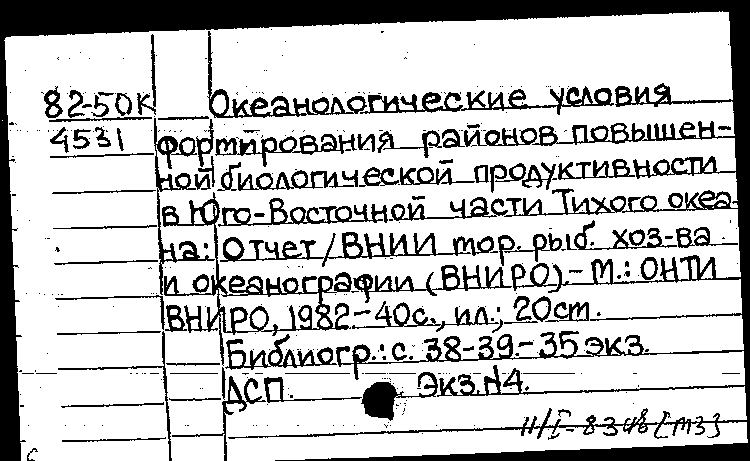 82-50К Океанологические условия
4531 формирования районов повышен-
ной биологической продуктивности
в Юго-Восточной части Тихого океа-
на: Отчет/ВНИИ мор. рыб. хоз-ва
и океанографии (ВНИРО).- М.: ОНТИ
ВНИРО, 1982.-40с., ил.; 20см.
Библиогр.: с. 38-39.-35 экз.
ДСП. Экз.N4.